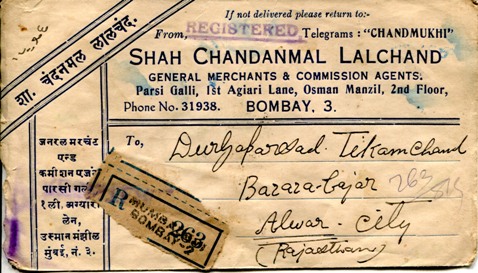 If not delivered please return to:-
From, REGISTERED Telegrams : "CHANDMUKHI"
SHAH CHANDANMAL LALCHAND
GENERAL MERCHANTS & COMMISSION AGENTS.
Parsi Galli, 1st Agiari Lane, Osman Manzil, 2nd Floor,
Phone No. 31938. BOMBAY, 3.
शा. चंदनमल लालचंद.
जनरल मरचंट
एन्ड
कमीशन एजन्ट
पारसी गली
१ली. अग्यारी
लेन,
उस्मान मंझील
मुंबई, नं. ३.
To,
Durgaparsad. Tikamchand
Bazara-bajar
Alwar - City
(Rajasthan)
R MUMBAI
263
BOMBAY-2